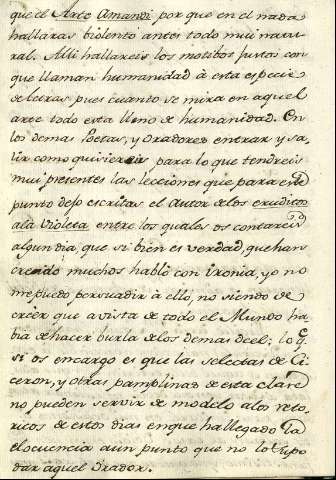 que el Arte Amandi por que en el nada
hallaras biolento antes todo mui natu-
ral. Alli hallareis los motibos justos con
que llaman humanidad à esta especie
de letras pues cuanto se mira en aquel
arte todo esta lleno de humanidad. En
los demas Poetas, y Oradores entrar y sa-
lir como quisiereis para lo que tendreis
mui presentes las lecciones que para este
punto dejo escritas el autor delos eruditos
ala Violeta entre los quales os contareis
algun dia, que si bien es verdad, que han
creido muchos hablò con Ironia, yo no
me puedo persuadir à ello, no siendo de
creèr que a vista de todo el Mundo ha-
bia de hacer burla de los demas deel: lo q.
si os encargo es que las selectas de Ci-
ceron, y otras pamplinas de esta clase
no pueden servir de modelo alos reto-
ricos de estos dias en que ha llegado la
elocuencia aun punto que no lo supo
dar aquel Orador.